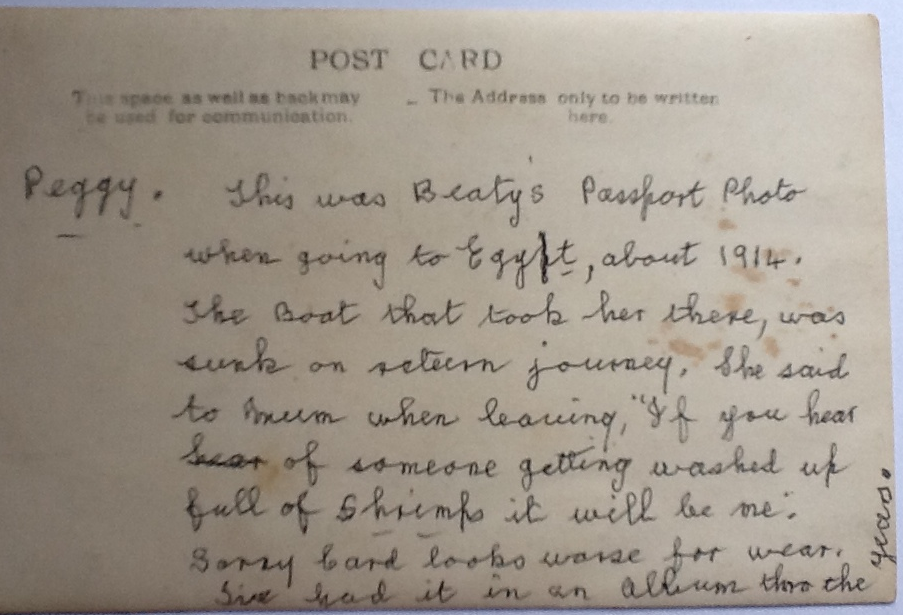 POST CARD
This space as well as back may be used for communication.
The Address only to be written here.
Peggy. This was Beaty's Passport Photo
when going to Egypt, about 1914.
The Boat that took her there, was
sunk on return journey. She said
to Mum when leaving, "If you hear
hear of someone getting washed up
full of Shrimps it will be me".
Sorry Card looks worse for wear.
I've had it in an Album thro the
years.